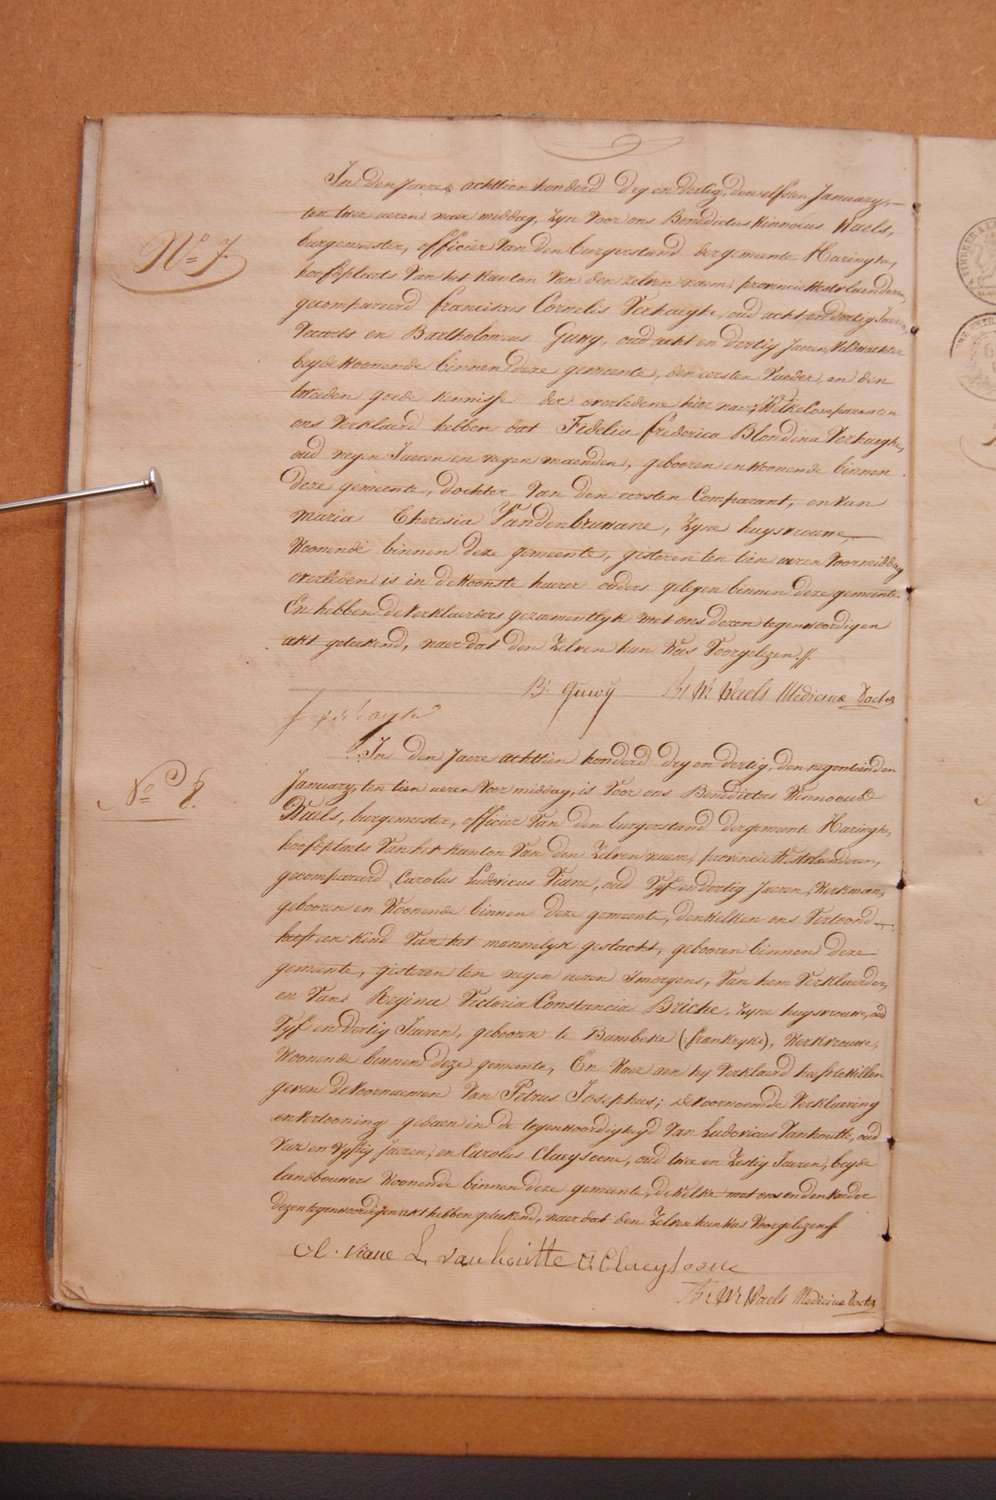 In den Jaere achttien honderd dry en dertig, den elfsten January,
ten twee ueren naer middag, zyn voor ons Benedictus Winnocus Waels,
burgemeester, officier van den burgerstand der gemeente Haringhe,
No 7.
hoofdplaets van het kanton van den zelven naem, provincie Westvlaenderen,
gecompareerd Franciscus Cornelis Verhaeghe, oud acht en dertig Jaeren,
en Bartholomeus Quwy, oud acht en dertig Jaeren,
beyde woonende binnen deze gemeente, den eersten vaeder, en den
tweeden goede kennisse der overledene hier naer, Welke comparanten
ons verklaerd hebben dat Fidelia Frederica Blondina Verhaeghe,
oud negen Jaeren en negen maenden, gebooren en woonende binnen
deze gemeente, dochter van den eersten Comparant, en van
Maria Theresia Vandenbruwane, zyne huysvrouwe,
woonende binnen deze gemeente, gisteren ten tien ueren voormiddag
overleden is in de woonste haerer ouders gelegen binnen deze gemeente.
En hebben de verklaerders gezamentlyk met ons dezen tegenwoordigen
akt geteekend, naer dat den zelven hun was voorgelezen.
B. Quwy B. W. Waels Medicinæ Doctor
In den Jaere achttien honderd dry en dertig, den negentienden
January, ten tien ueren voor middag, is voor ons Benedictus Winnocus
No 8.
Waels, burgemeester, officier van den burgerstand der gemeente Haringhe,
hoofdplaets van het kanton van den zelven naem, provincie Westvlaenderen,
gecompareerd Carolus Ludovicus Viane, oud vyf en dertig Jaeren, Werkman,
gebooren en woonende binnen deze gemeente, denwelken ons vertoond
heeft een kind van het mannelyk geslacht, gebooren binnen deze
gemeente, gisteren ten negen ueren smorgens, van hem verklaerder,
en van Regina Victoria Constancia Briche, zyne huysvrouwe, oud
vyf en dertig Jaeren, gebooren te Bambeke (frankryke), Werkvrouwe,
woonende binnen deze gemeente, En waer aen hy verklaerd heeft te willen
geven de voornaemen van Petrus Josephus; de voornoemde verklaering
en vertooning gedaen in de tegenwoordigheyd van Ludovicus Vanhoutte, oud
vier en vyftig Jaeren, en Carolus Claeysoone, oud twee en zestig Jaeren, beyde
landbouwers woonende binnen deze gemeente, de welke met ons en den vader
dezen tegenwoordigen akt hebben geteekend, naer dat den zelven hun was voorgelezen
Viane L. vanhoutte C Claeysoone
B. W. Waels Medicinæ Doctor